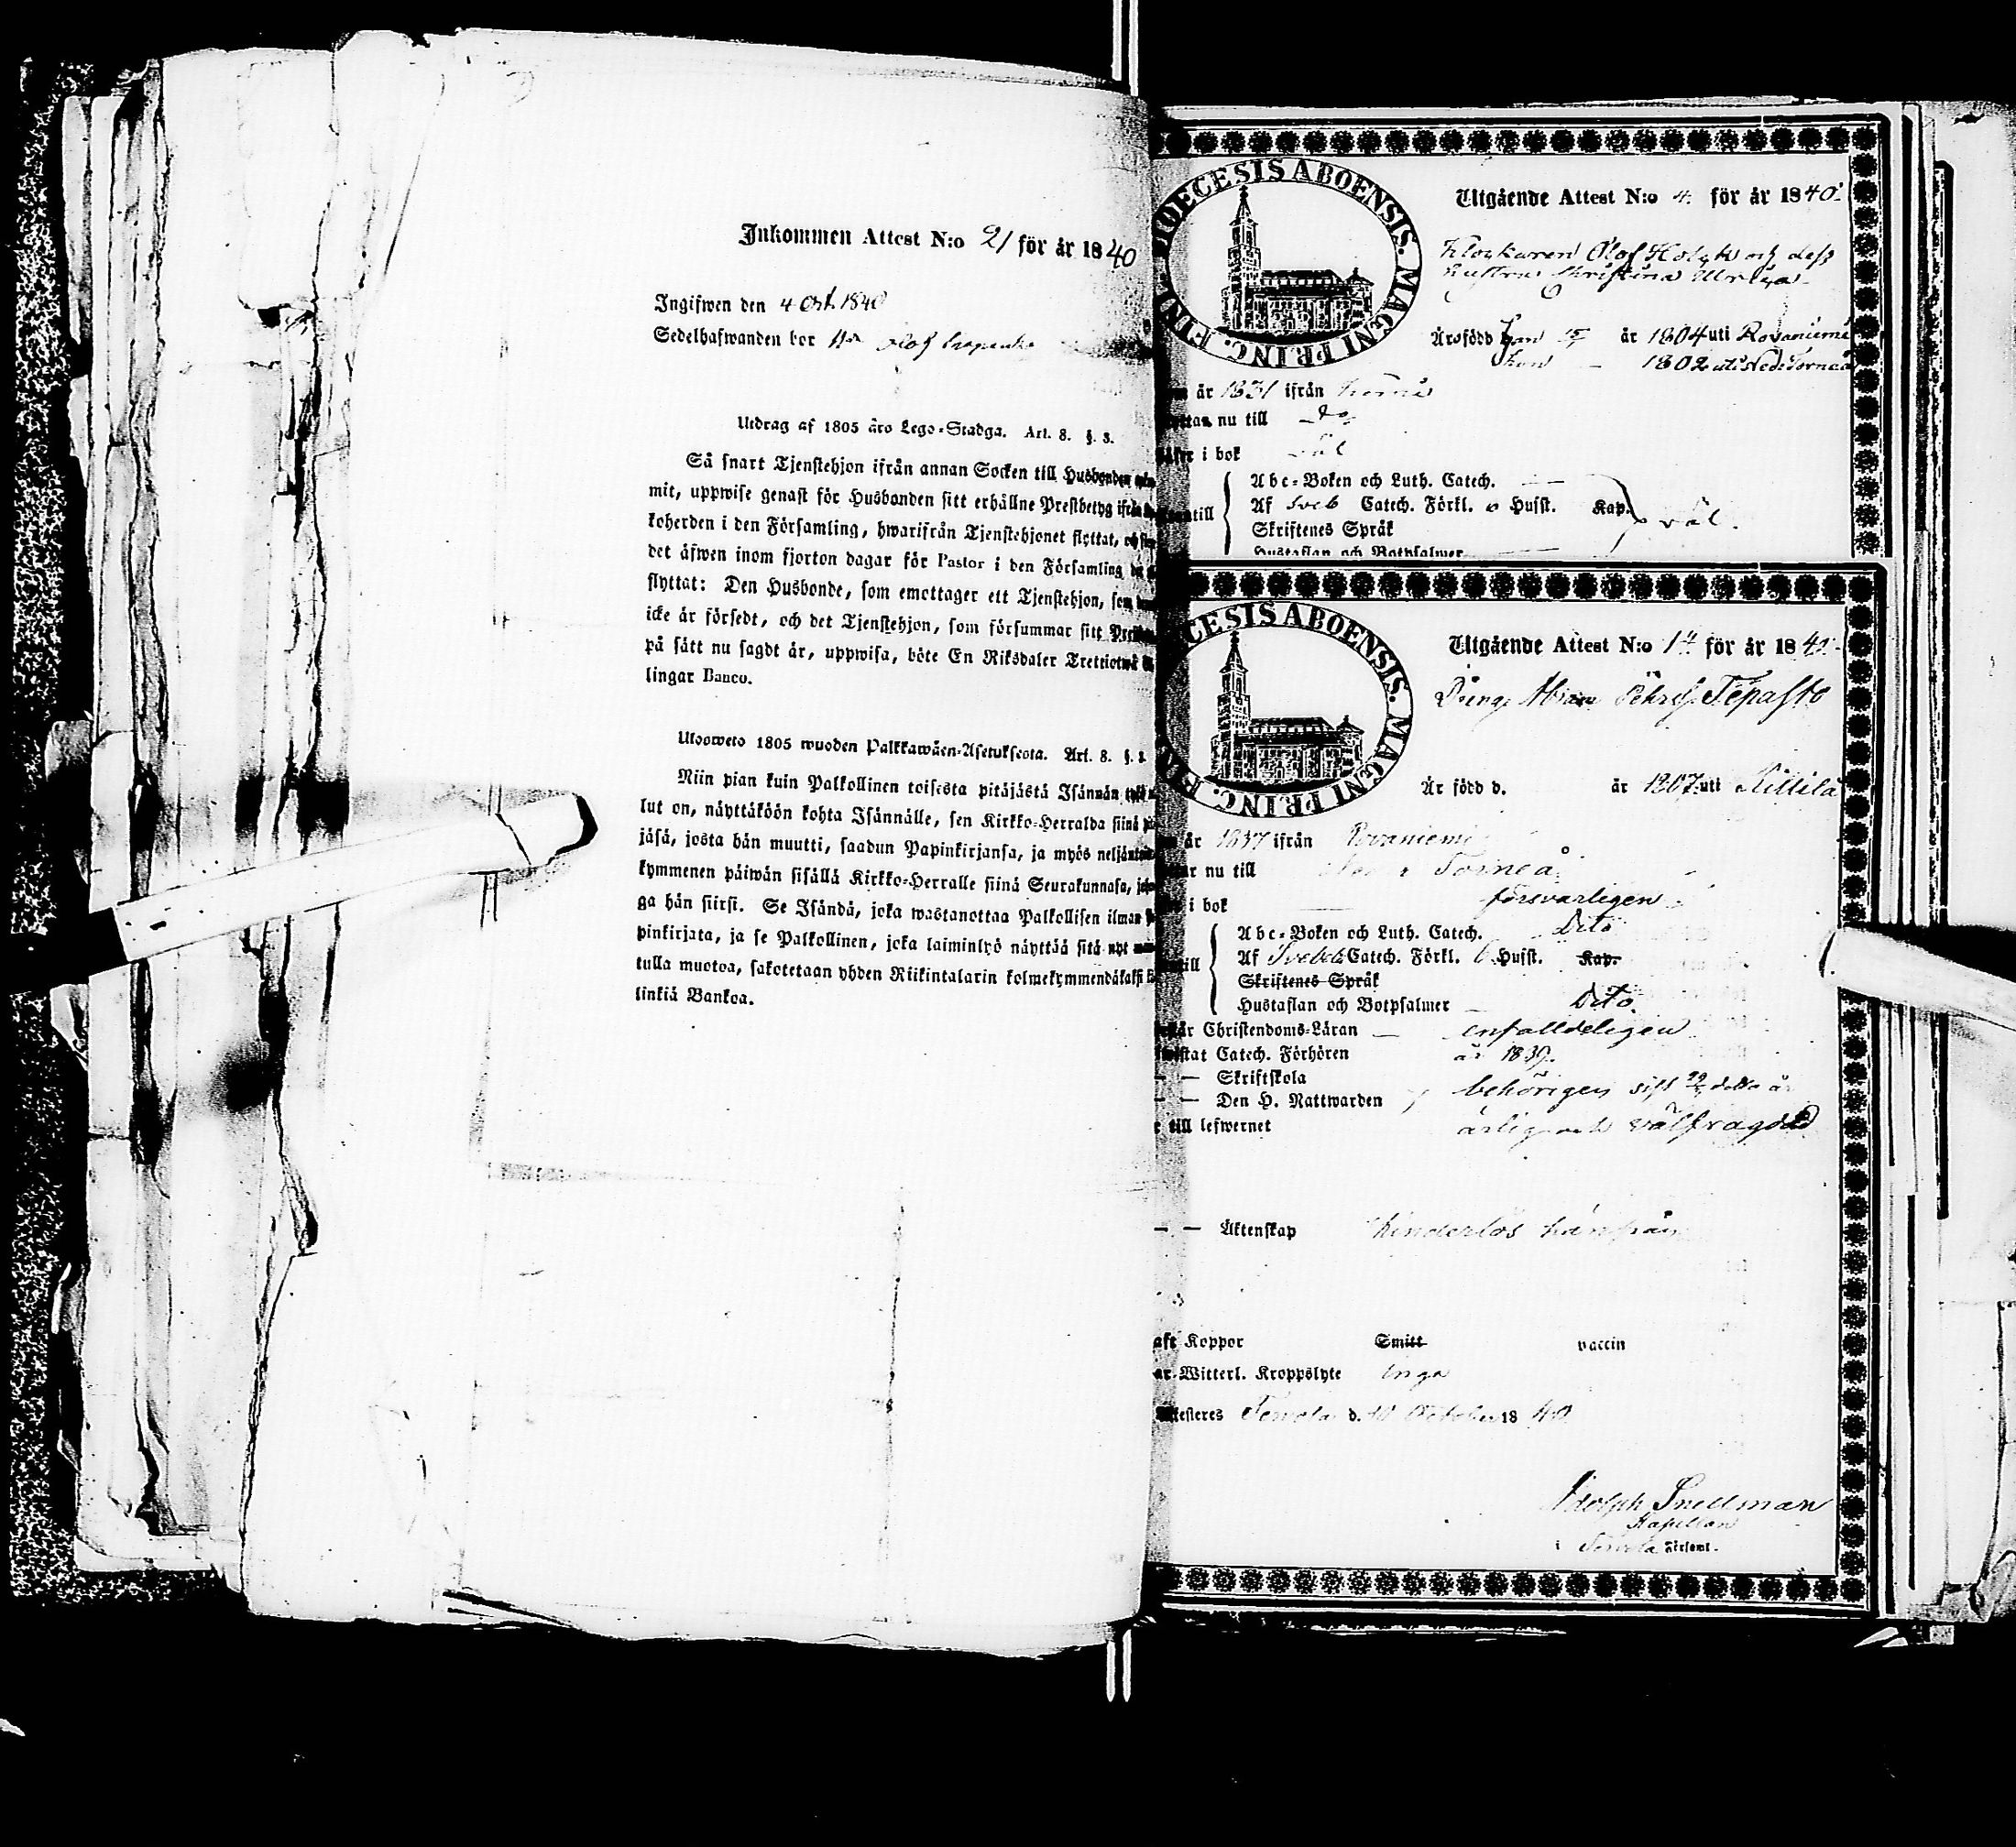 Inkommen Attest N:o 21 för år 1840
Ingifwen den 4 Oct. 1840
Sedelhafwanden bor Hos Olof
Utdrag af 1805 års Lego-Stadga. Art. 8. §. 3.
Så snart Tjenstehjon ifrån annan Socken till Husbonden
mit, uppwise genast för Husbonden sitt erhållne Prestbetyg ifrån
koherden i den Församling, hwarifrån Tjenstehjonet flyttat, och
det äfwen inom fjorton dagar för Pastor i den Församling
flyttat: Den Husbonde, som emottager ett Tjenstehjon, som
icke är försedt, och det Tjenstehjon, som försummar sitt
på sätt nu sagdt är, uppwisa, böte En Riksdaler Trettiotwå
lingar Banco.
Ulosweto 1805 wuoden Palkkawäen-Asetuksesta. Art. 8. §. 3.
Niin pian kuin Palkollinen toisesta pitäjästä Isännän
lut on, näyttäköön kohta Isännälle, sen Kirkko-Herralda siinä
jäsä, josta hän muutti, saadun Papinkirjansa, ja myös
kymmenen päiwän sisällä Kirkko-Herralle siinä Seurakunnasa,
ga hän siirsi. Se Isändä, joka wastanottaa Palkollisen ilman
pinkirjata, ja se Palkollinen, joka laiminlyö näyttää sitä nyt
tulla muotoa, sakotetaan yhden Riikintalarin kolmekymmendäkaksi
linkiä Bankoa.
DIOECESIS ABOENSIS. MAGNI PRINC. FINL
Utgående Attest N:o 4. för år 1840.
Klockaren Olof Holck och dess
hustru Christina Ulrica
Äro född han 15/ år 1804 uti Rovaniemi
hon — 1802 uti Ned. Torneå
år 1831 ifrån
nu till
i bok Väl
Abc-Boken och Luth. Catech. —
Af Sveb Catech. Förkl. o Husst. Kap. väl.
Skriftenes Språk
Hustaflan och Botpsalmer —
CESIS ABOENSIS. MAGNI PRINC. F
Utgående Attest N:o 14 för år 1840.
Dräng Abram Pehrss. Tepasto
Är född d. år 1807 uti Kittilä
år 1837 ifrån Rovaniemi
nu till Torneå
i bok — försvarligen
Abc-Boken och Luth. Catech. Dito
till Af Svebel. Catech. Förkl. Husst. Kap.
Skriftenes Språk
Hustaflan och Botpsalmer — Dito
Christendoms-Läran — enfalldeligen
Catech. Förhören år 1839.
— — Skriftskola
— — Den H. Nattwarden behörigen sist detta år
till lefwernet ärlig och välfrägdad
— — Äktenskap hinderlös härifrån
haft Koppor Smitt vaccin
Witterl. Kroppslyte Inga
Attesteres Terwola d. October 1840
Adolph Snellman
Kapellan
i Terwola Församl.